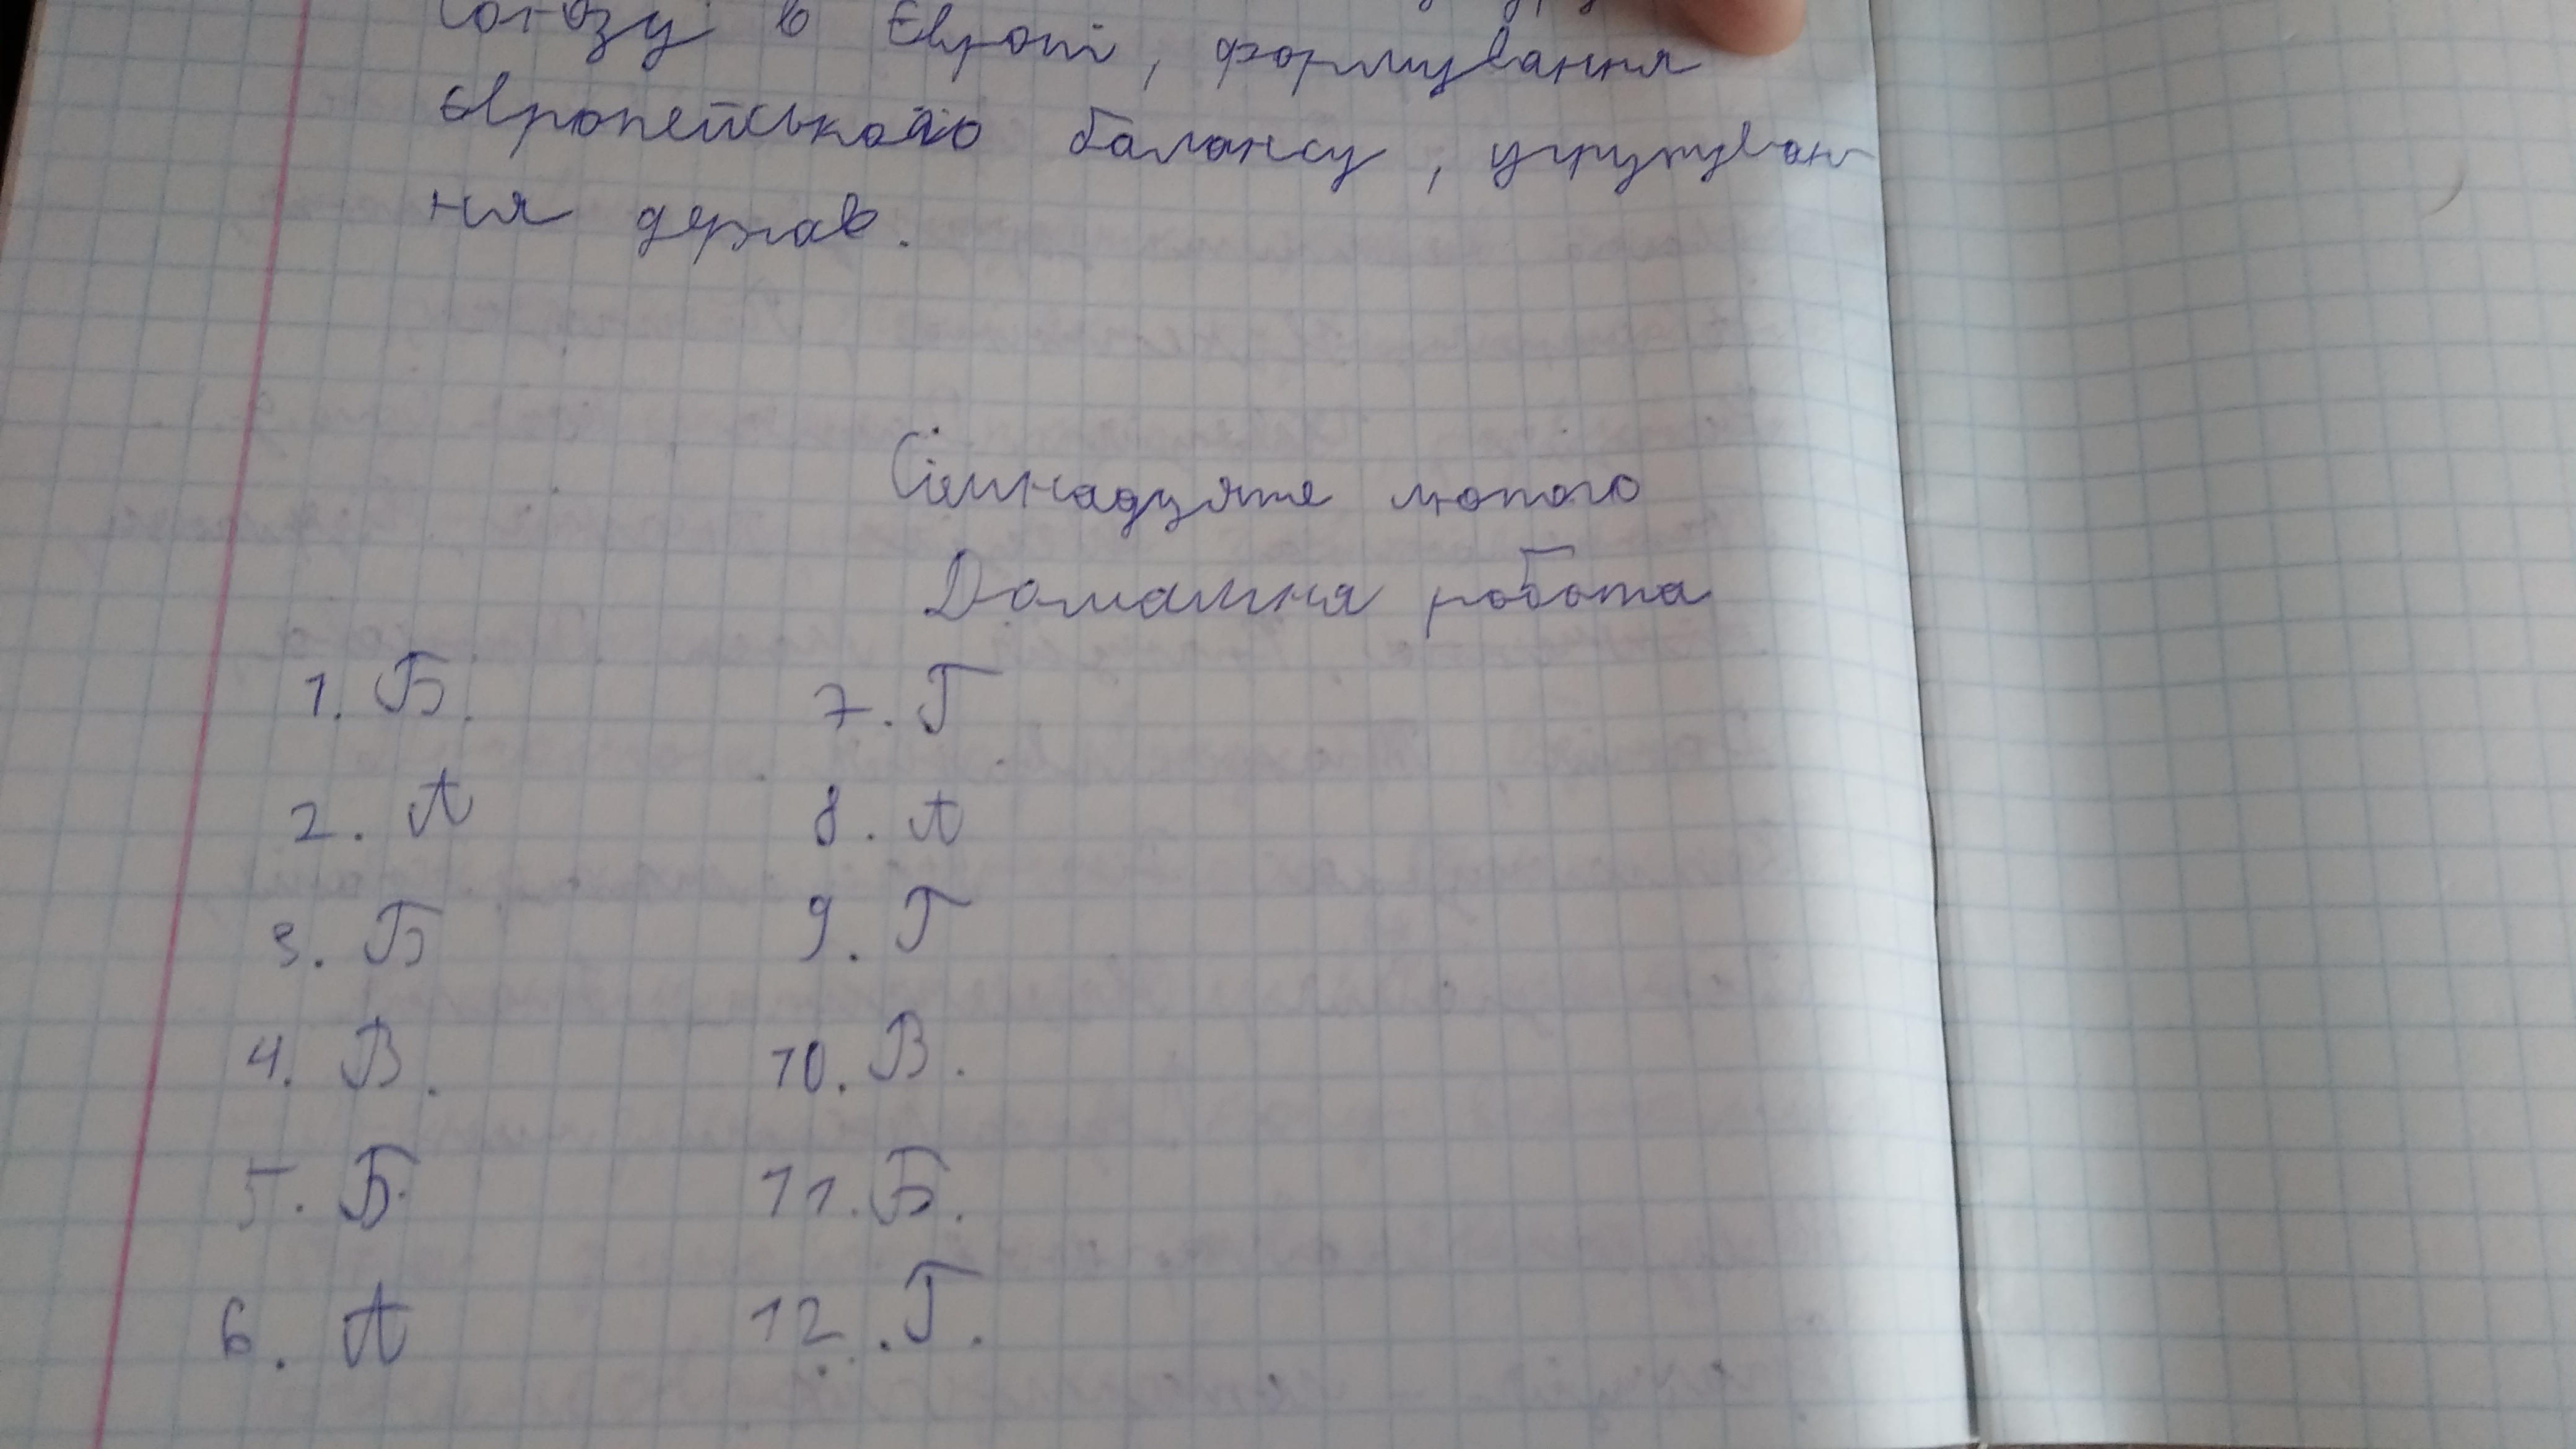 союзу в Європі, формування
європейського балансу, угрупуван
ня держав.
Сімнадцяте лютого
Домашня робота
1. Б.
2. А
3. Б
4. В.
5. Б.
6. А
7. Г
8. А
9. Г
10. В.
11. Б.
12. Г.